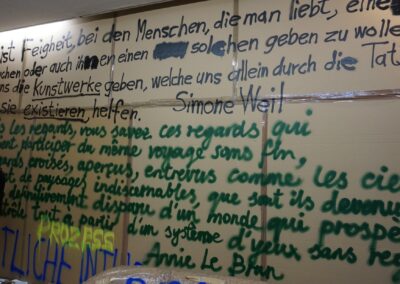 ist Feigheit, bei den Menschen, die man liebt, eine
chen oder auch ihnen einen solchen geben zu wolle
ns die Kunstwerke geben, welche uns allein durch die Tat
sie existieren, helfen. Simone Weil
les regards, vous savez ces regards qui
participer du même voyage sans fin,
gards croisés, aperçus, entrevus comme les cie
de paysages indiscernables, que sont ils devenus
disparu d'un monde qui prospè
trôle trait à part, d'un système d'yeux sans reg
Annie Le Brun
PROZESS
TLICHE